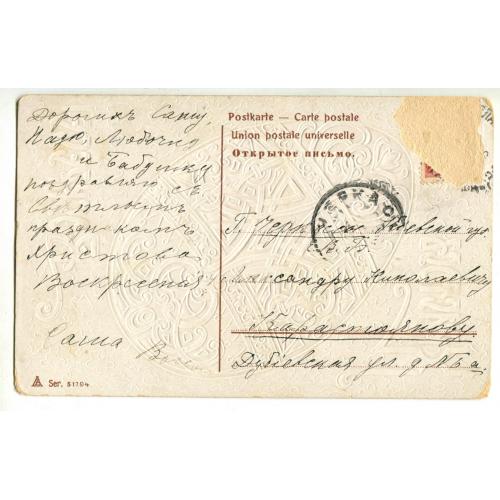 Дорогихъ Сашу,
Надю, Любочку
и Бабушку
поздравляю съ
Свѣтлымъ
праздникомъ
Христова
Воскресенія
Саша
Ser. 51704
Postkarte — Carte postale
Union postale universelle
Открытое письмо.
ЧЕРКАС
Г. Черкассы Кіевской гу
В. Б.
Александру Николаевичу
Дубіевская ул. д №